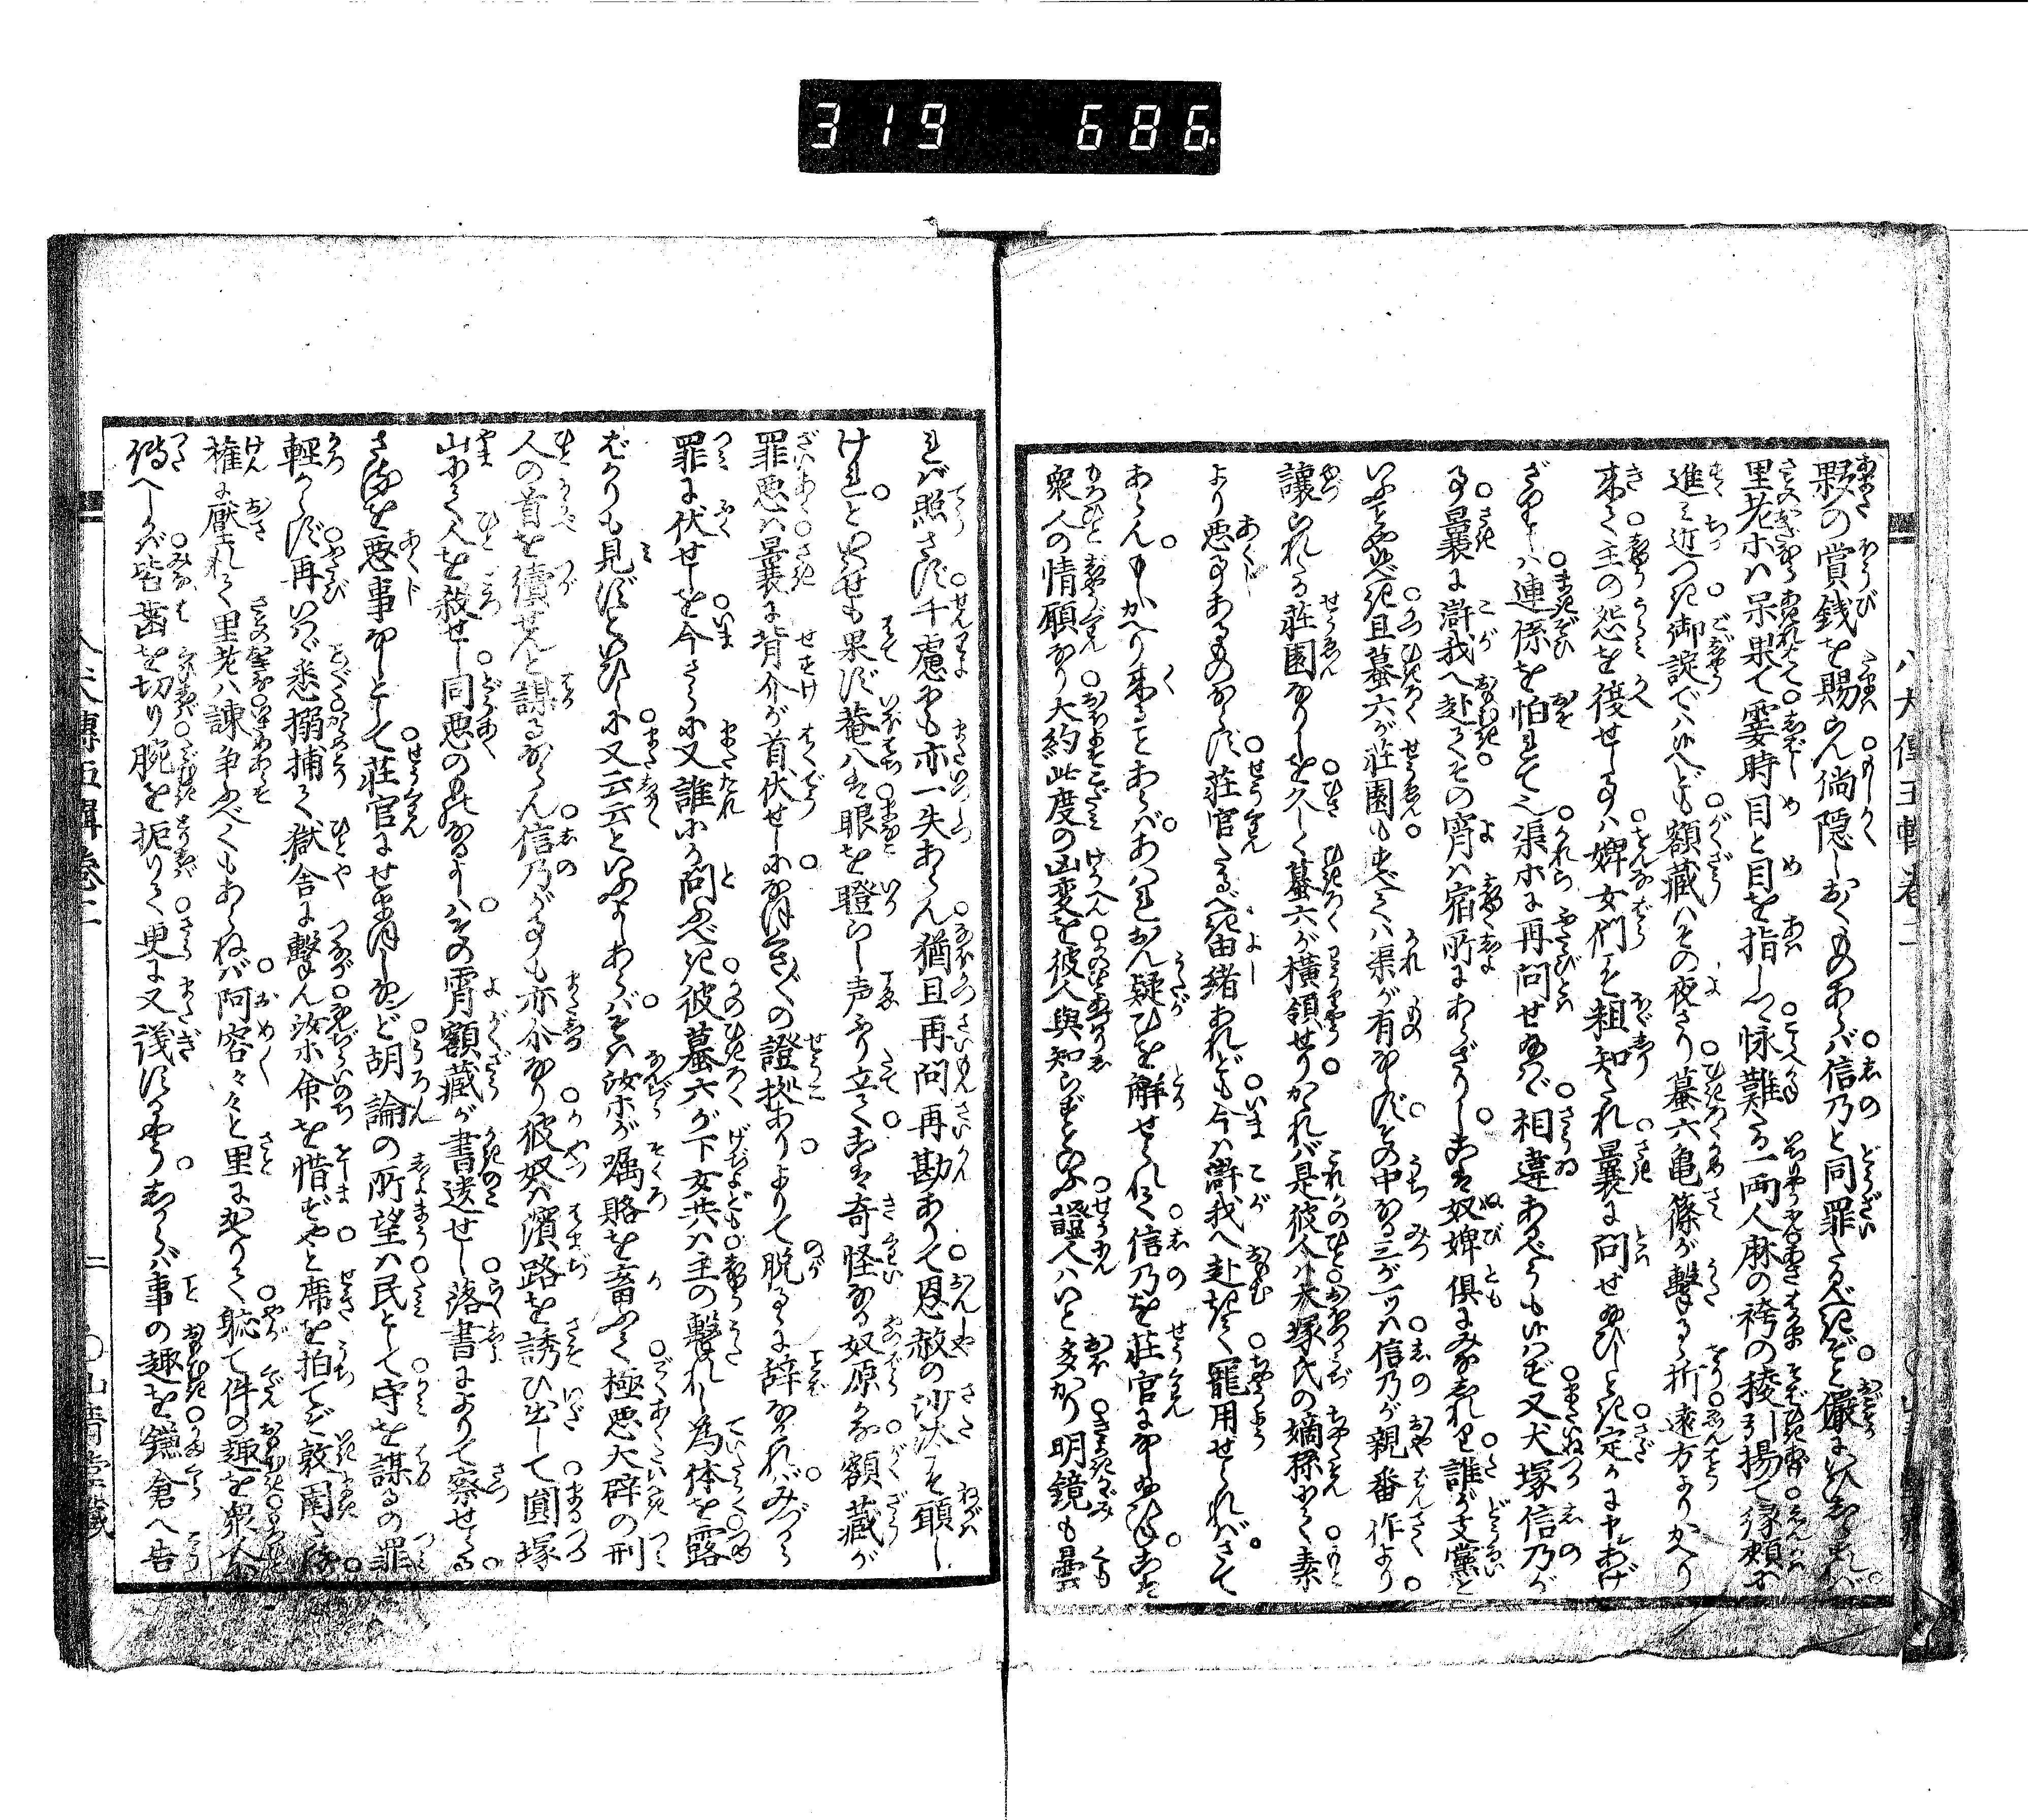 319 686
夥の賞銭を賜らん倘隠しおくものあらば信乃と同罪たるべきぞと厳にいひしらすれば
里老ホは呆果て霎時目と目を指しつゝ咏難たる一両人麻の袴の稜引揚て縁頬が
進み近つき御諚では候へども額蔵はその夜さり蟇六亀篠が撃るゝ折遠方よりかへり
来て主の怨を復せし事は婢女們も粗知れり曩に問せ給ひしとき定かに申あげ
ざりしは連係を怕れて也渠ホに再問せ給はゞ相違あるべうも候はず又犬塚信乃が
事曩に滸我へ赴きてその宵は宿所にあらざりしこは奴婢倶にみなしれり誰が支黨と
いふべき且蟇六が荘園もすべては渠が有ならずその中なる三が一は信乃が親番作より
譲られたる荘園なりしを久しく蟇六が横領せりかゝれば是彼人は犬塚氏の嫡孫にて素
より悪事あるものならず荘官たるべき由緒あれども今は滸我へ赴きて寵用せらればさて
あらんもしかへり来ることあらばあはれおん疑ひを解せられて信乃を荘官に申給はゞこは
衆人の情願なり大約此度の凶変を彼人與知らずといふ證人はいと多かり明鏡も曇
れば照さず千慮にも亦一失あらん猶且再問再勘ありて恩赦の沙汰を願し
けれといはせも果ず菴八は眼を瞪らし声ふり立てこは奇怪なる奴原かな額蔵が
罪悪は曩に背介が首伏せしになほさま〲の證拠ありよりて脱るゝに辞なければみづから
罪に伏せしを今さらに又誰にか問ふべき彼蟇六が下女共は主の撃れし為体を露
ばかりも見ずといひしに又云云といふよしあらばそは汝ホが嘱賂を畜ふて極悪大辟の刑
人の首を續せんと謀るならん信乃が事も亦尒なり彼奴は濱路を誘ひ出して圓塚
山にて人を殺せし同悪のものなるよしはその宵額蔵が書遺せし落書によりて察せらる
さるを悪事なしとて荘官にせまほしなど胡論の所望は民として守を謀るの罪
軽からず再いはゞ悉搦捕て獄舎に繋ん汝ホ命を惜ずやと席を拍てぞ敦圉たる
権に壓れて里老ハ諌争ふべくもあらねば阿容々々と里に退りて聴て件の趣を衆人
傳へしかば皆歯を切り腕を扼りて更に又議するやうしからば事の趣を鎌倉へ告